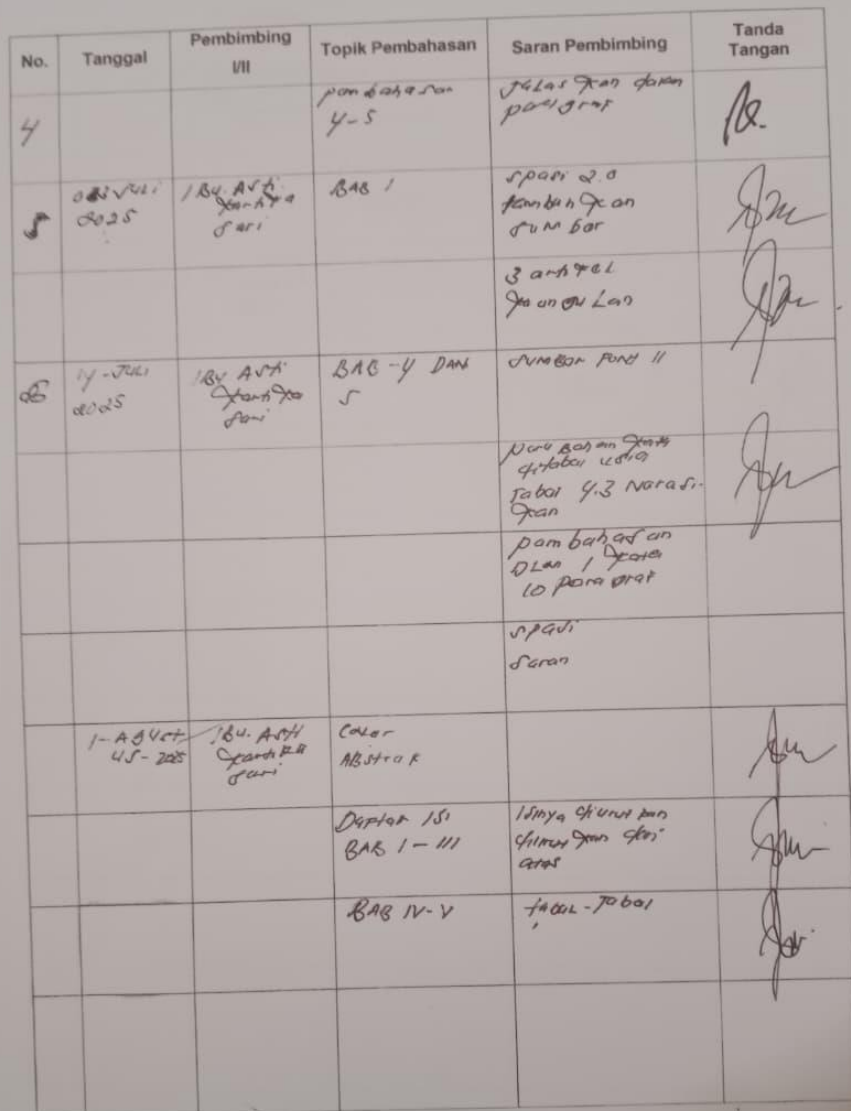 No. Tanggal Pembimbing I/II Topik Pembahasan Saran Pembimbing Tanda Tangan
4
pembahasan
4-5
Jelas kan dalam
paragraf
5
Juli
2025
IBu. Asti
Kartika
Sari
BAB 1
Spasi 2.0
tambah kan
Sumber
3 artikel
14-Juli
2025
IBu Asti
Kartika
Sari
BAB-4 DAN
5
SUMBER FONT 11
ditabel usia
Tabel 4.3 Narasi-
kan
pembahasan
10 paragraf
Spasi
Saran
1-Agust
us-2025
IBu. Asti
Kartika
Sari
Cover
Abstrak
Daftar ISI
BAB I-III
Isinya diurut kan
diurut kan dari
atas
BAB IV-V
tabel-Tabel